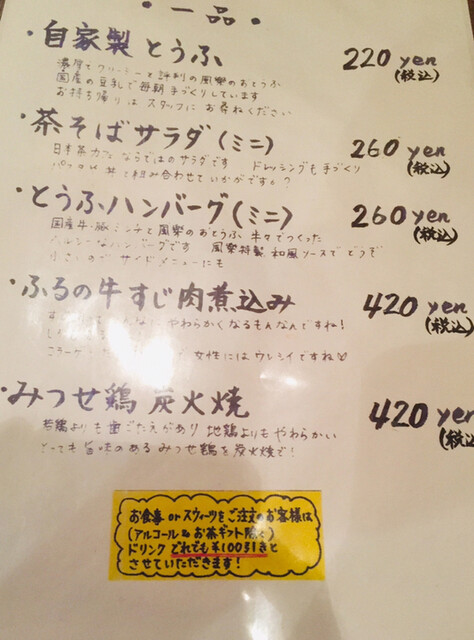 ・一品・
・自家製 とうふ 220 yen
(税込)
濃厚でクリーミーと評判の風樂のおとうふ
国産の豆乳で毎朝手づくりしています
お持ち帰りは スタッフに お尋ねください
・茶そばサラダ(ミニ) 260 yen
(税込)
日本茶カフェ ならではのサラダです ドレッシングも手づくり
丼と組み合わせていかがですか?
・とうふハンバーグ(ミニ) 260 yen
(税込)
国産牛・豚ミンチと風樂のおとうふ 半々でつくった
ヘルシーなハンバーグです 風樂特製 和風ソースで どうぞ
小さいので サイドメニューにも
・ふるの牛すじ肉煮込み 420 yen
(税込)
やわらかくなるもんなんですね!
女性にはウレシイですね
・みつせ鶏 炭火焼 420 yen
(税込
若鶏よりも歯ごたえがあり 地鶏よりもやわらかい
とっても旨味のある みつせ鶏を炭火焼で!
お食事 or スウィーツをご注文のお客様は
(アルコール & お茶ギフト除く)
ドリンク どれでも¥100引きと
させていただきます!